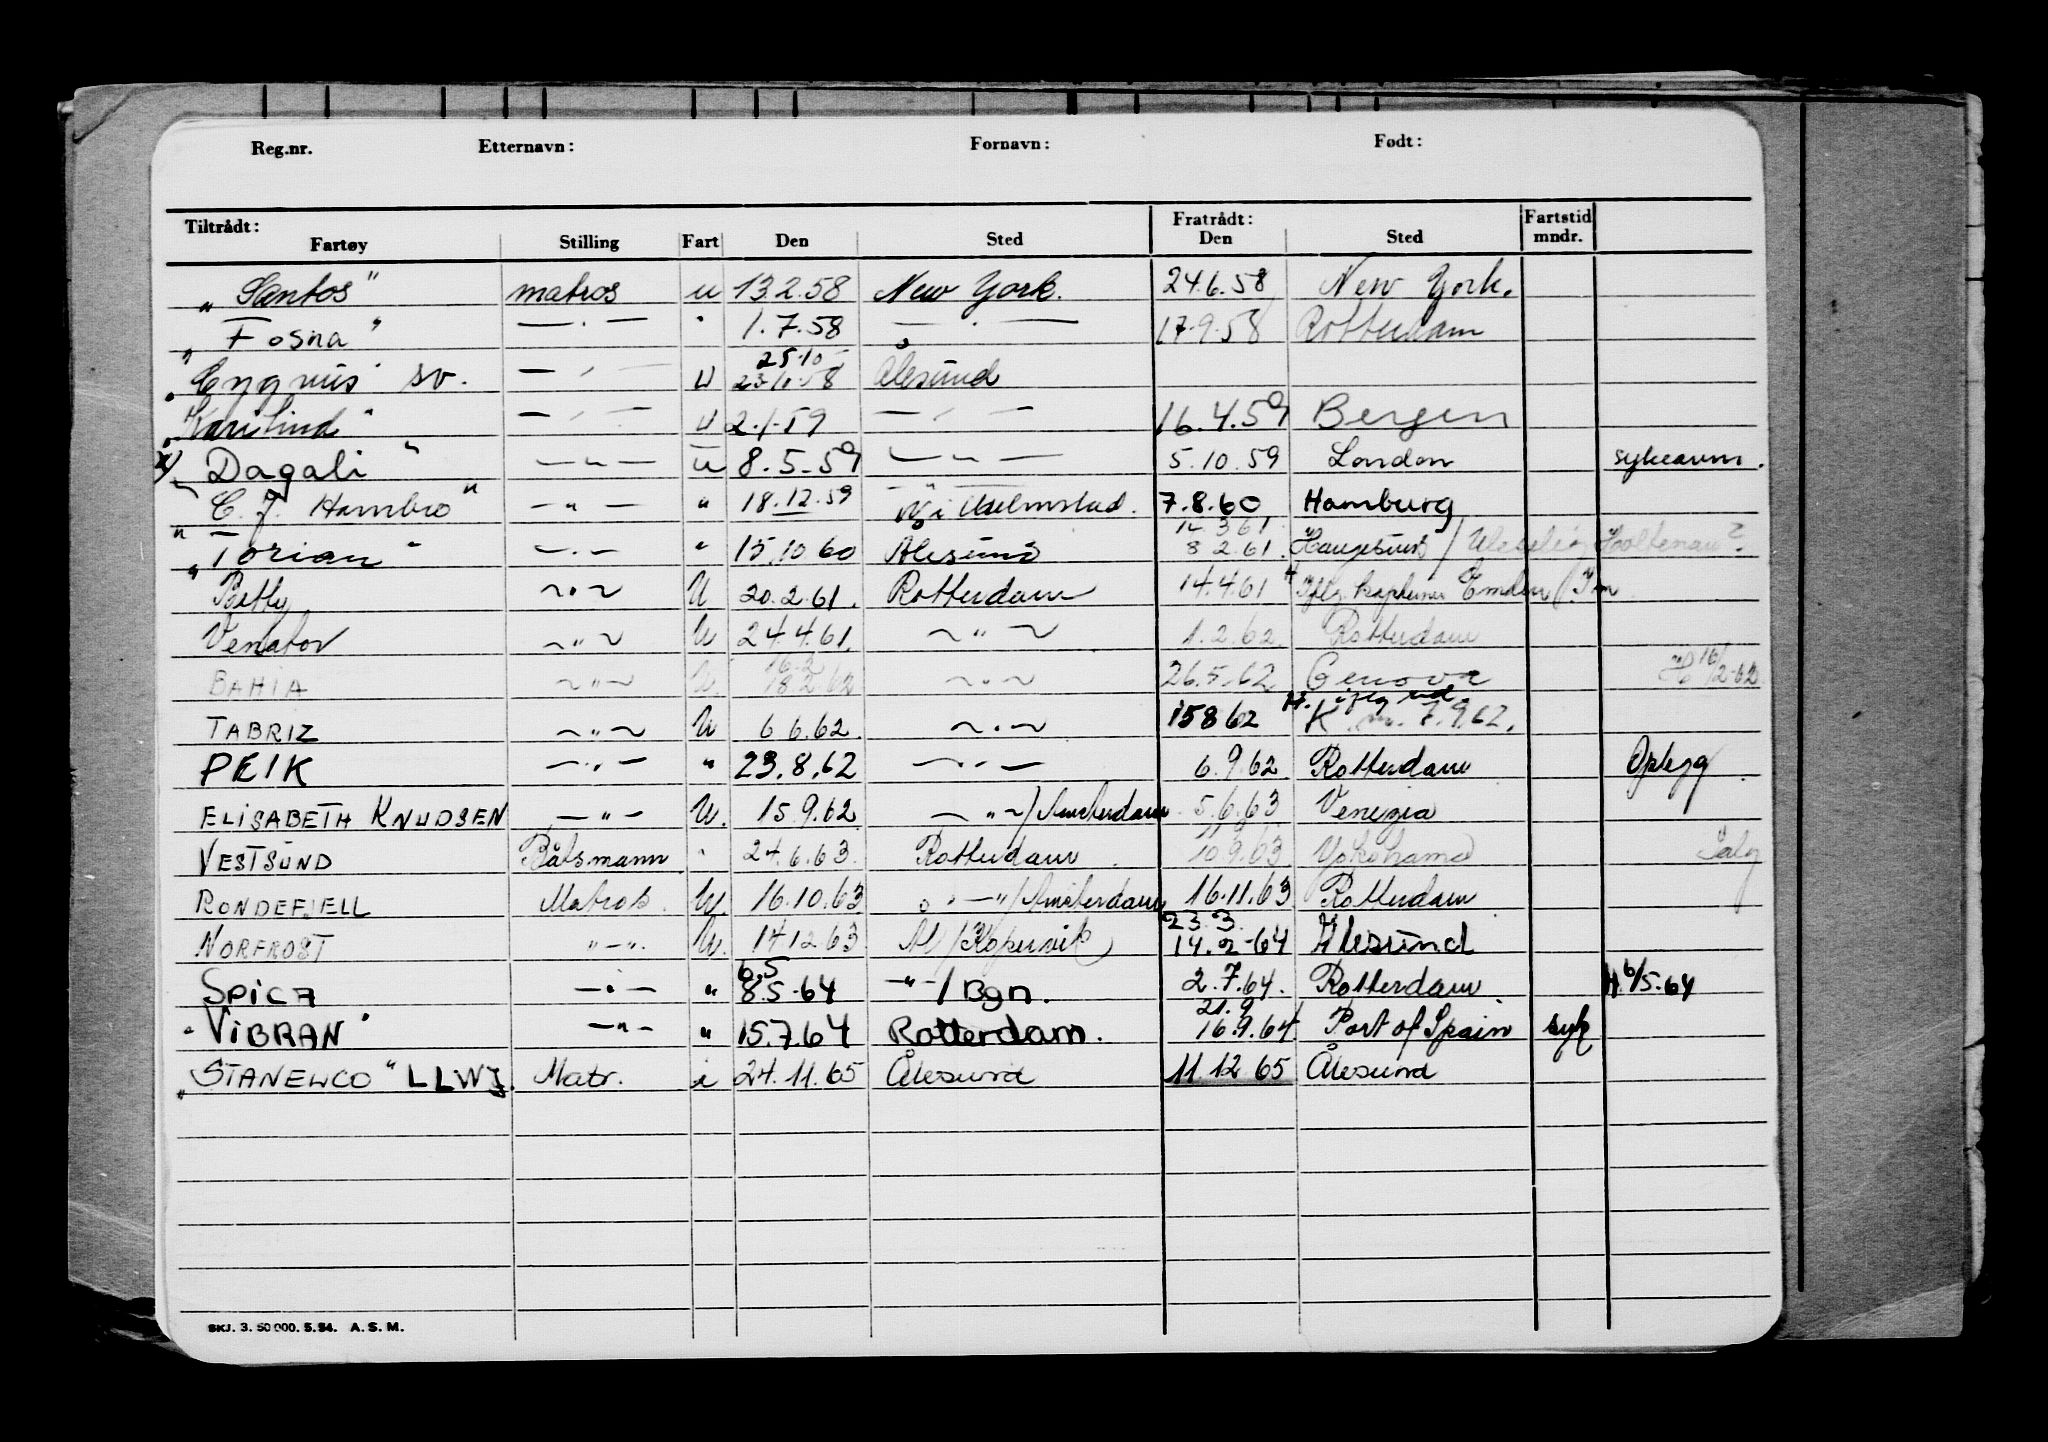 Reg.nr. Etternavn: Fornavn: Født:
Tiltrådt: Fratrådt: Fartstid
Fartøy Stilling Fart Den Sted Den Sted mndr.
„Santos" matros u 13.2.58 New York. 24.6.58 New York.
„Fosna" — . — " 1.7.58 — " — 17.9.58 Rotterdam
25.10
„Cygnus" sv. — " — U 23.10.58 Ålesund
„Karilind" — " — U 2.1.59 — " — 16.4.59 Bergen
x) „Dagali" — " — u 8.5.59 — " — 5.10.59 London sykeavm.
„C. J. Hambro" — " — " 18.12.59 Halmstad. 7.8.60 Hamburg
12.3.61
„Torian" — . — " 15.10.60 Ålesund 8.2.61. Haugesund / Holtenau?
Betty ~ " ~ U 20.2.61. Rotterdam 14.4.61 Iflg. kapteinen Emden
Venator ~ " ~ U 24.4.61. ~ " ~ 1.2.62 Rotterdam
16.2
BAHIA ~ " ~ U. 18.2.62 ~ " ~ 26.5.62 Genova H 16/2-62
H. iflg
TABRIZ ~ " ~ U 6.6.62. ~ " ~ 15.8.62 K 7.9.62.
PEIK — " — " 23.8.62 — " — 6.9.62 Rotterdam Opt.
ELISABETH KNUDSEN — " — U. 15.9.62 — " ~/Amsterdam 5.6.63 Venezia
11.9
VESTSUND Båtsmann " 24.6.63. Rotterdam. 10.9.63 Yokohama
RONDEFJELL Matros. U. 16.10.63 " — "/Amsterdam 16.11.63 Rotterdam
23.3.
NORFROST " — ". U. 14.12.63 Ål/Kopervik 14.2-64 Ålesund
6.5
SPICA — " — " 8.5-64 — " —/Bgn. 2.7.64. Rotterdam H 6/5.64
21.9
"VIBRAN" — " — " 15.7.64 Rotterdam. 16.9.64 Port of Spain syk
„STANEWCO" LLWJ. Matr. i 24.11.65 Ålesund 11.12.65 Ålesund
SKJ. 3. 50 000. 5.54. A. S. M.